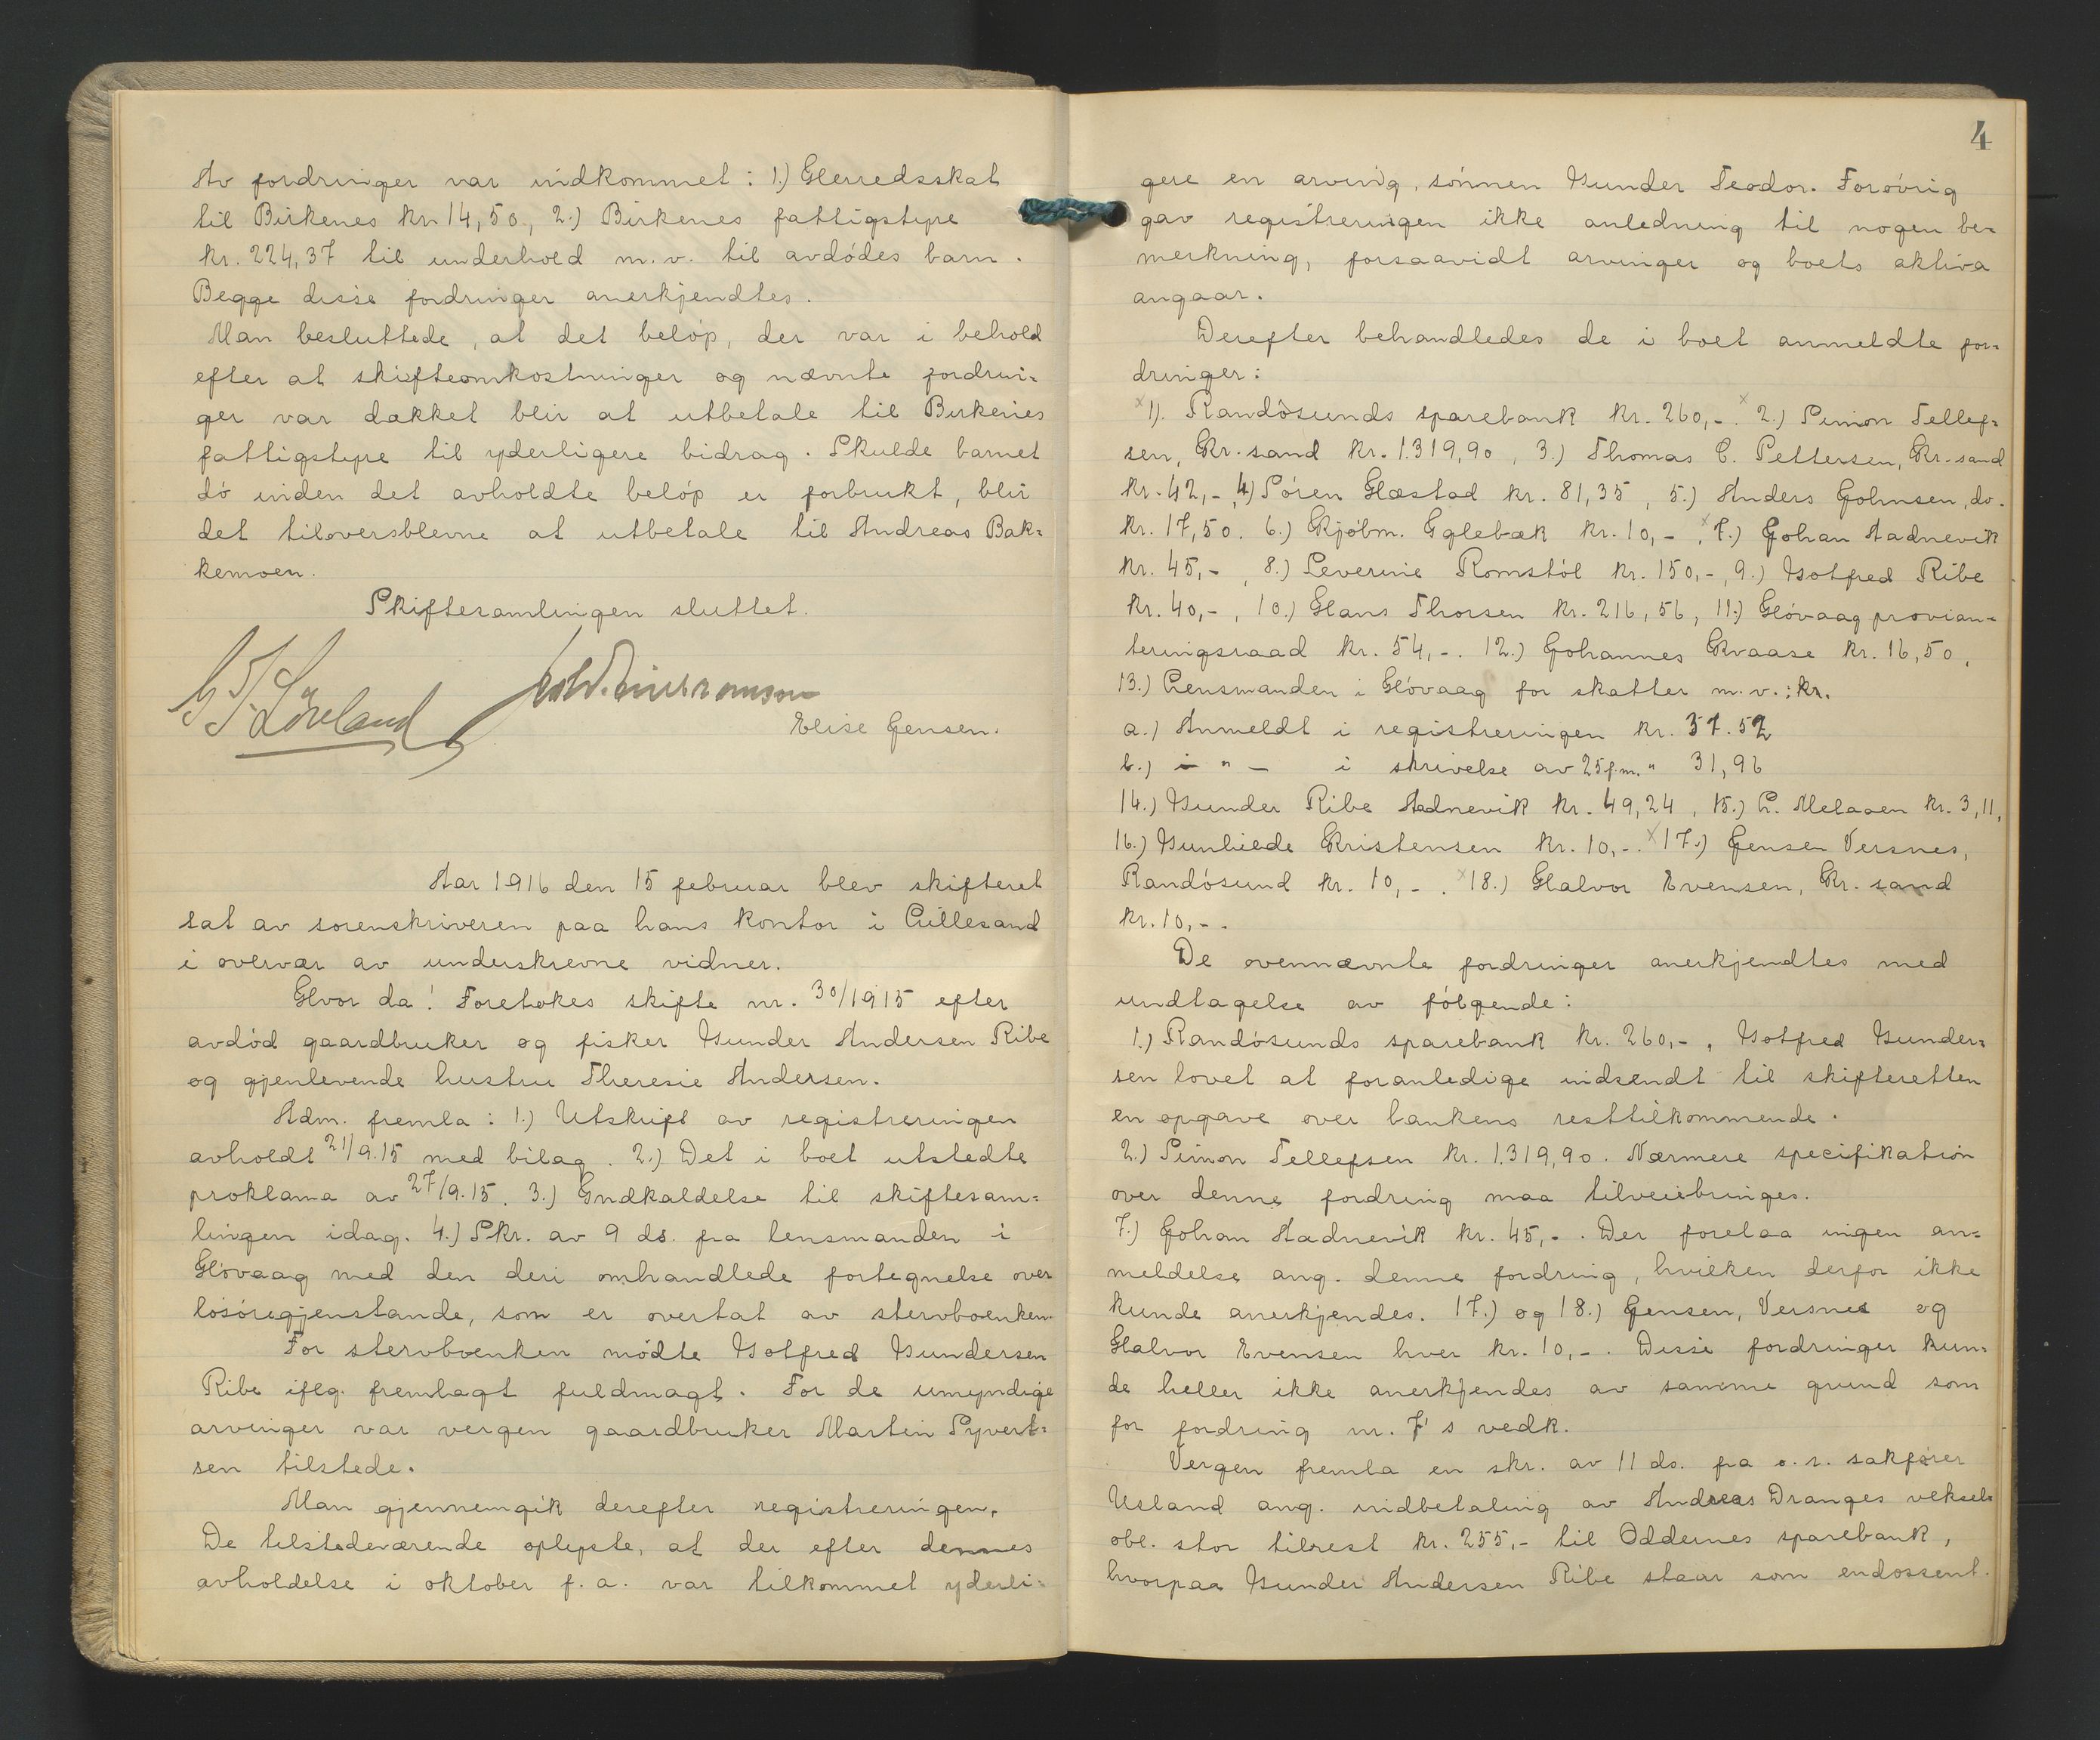 Av fordringer var indkommet: 1.) Herredsskat
til Birkenes kr. 14,50, 2.) Birkenes fattigstyre
kr. 224,37 til underhold m.v. til avdødes barn.
Begge disse fordringer anerkjendtes.
Man besluttede, at det beløp, der var i behold
efter at skifteomkostninger og nævnte fordrin=
ger var dækket blir at utbetale til Birkenes
fattigstyre til yderligere bidrag. Skulde barnet
dø inden det avholdte beløp er forbrukt, blir
det tiloversblevne at utbetale til Andreas Bak=
kemoen.
Skiftesamlingen sluttet.
Løveland
Elise Jensen.
Aar 1916 den 15 februar blev skifteret
sat av sorenskriveren paa hans kontor i Lillesand
i overvær av underskrevne vidner.
Hvor da! Foretokes skifte nr. 30/1915 efter
avdød gaardbruker og fisker Gunder Andersen Ribe
og gjenlevende hustru Theresie Andersen.
Adm. fremla: 1.) Utskrift av registreringen
avholdt 21/9.15 med bilag. 2.) Det i boet utstedte
proklama av 27/9.15. 3.) Indkaldelse til skiftesam=
lingen idag. 4.) Skr. av 9 ds. fra lensmanden i
Høvaag med den deri omhandlede fortegnelse over
løsøregjenstande, som er overtat av stervboenken.
For stervboenken mødte Gotfred Gundersen
Ribe iflg. fremlagt fuldmagt. For de umyndige
arvinger var vergen gaardbruker Martin Syvert=
sen tilstede.
Man gjennemgik derefter registreringen.
De tilstedeværende oplyste, at der efter dennes
avholdelse i oktober f.a. var tilkommet yderli=
4
gere en arving, sønnen Gunder Teodor. Forøvrig
gav registreringen ikke anledning til nogen be=
merkning, forsaavidt arvinger og boets aktiva
angaar.
Derefter behandledes de i boet anmeldte for=
dringer:
x1). Randøsunds sparebank kr. 260,-. x2.) Simon Tellef=
sen, Kr.sand kr. 1.319,90, 3.) Thomas C. Pettersen, Kr.sand
kr. 42,-, 4) Søren Hæstad kr. 81,35, 5.) Anders Johnsen, do.
kr. 17,50. 6.) Kjøbm. Iglebæk kr. 10,-, x7.) Johan Aadnevik
kr. 45,-, 8.) Severine Romstøl kr. 150,-, 9.) Gotfred Ribe
kr. 40,-, 10.) Hans Thorsen kr. 216,56, 11.) Høvaag provian=
teringsraad kr. 54,-. 12.) Johannes Kvaase kr. 16,50,
13.) Lensmanden i Høvaag for skatter m.v.: kr.
a.) Anmeldt i registreringen kr. 37.52
b.) - " - i skrivelse av 25 f.m. " 31,96
14.) Gunder Ribe Aadnevik kr. 49,24, 15.) L. Melaaen kr. 3,11,
16.) Gunhilde Kristensen kr. 10,-. x17.) Jensen Versnes,
Randøsund kr. 10,-. x18.) Halvor Evensen, Kr. sand
kr. 10,-.
De ovennævnte fordringer anerkjendtes med
undtagelse av følgende:
1.) Randøsunds sparebank kr. 260,-, Gotfred Gunder=
sen lovet at foranledige indsendt til skifteretten
en opgave over bankens resttilkommende.
2.) Simon Tellefsen kr. 1.319,90. Nærmere specifikation
over denne fordring maa tilveiebringes.
7.) Johan Aadnevik kr. 45,-. Der forelaa ingen an=
meldelse ang. denne fordring, hvilken derfor ikke
kunde anerkjendes. 17.) og 18.) Jensen, Versnes og
Halvor Evensen hver kr. 10,-. Disse fordringer kun=
de heller ikke anerkjendes av samme grund som
for fordring nr. 7's vedk.
Vergen fremla en skr. av 11 ds. fra o.r. sakfører
Usland ang. indbetaling av Andreas Dranges veksel=
obl. stor tilrest kr. 255,- til Oddernes sparebank,
hvorpaa Gunder Andersen Ribe staar som endossent.